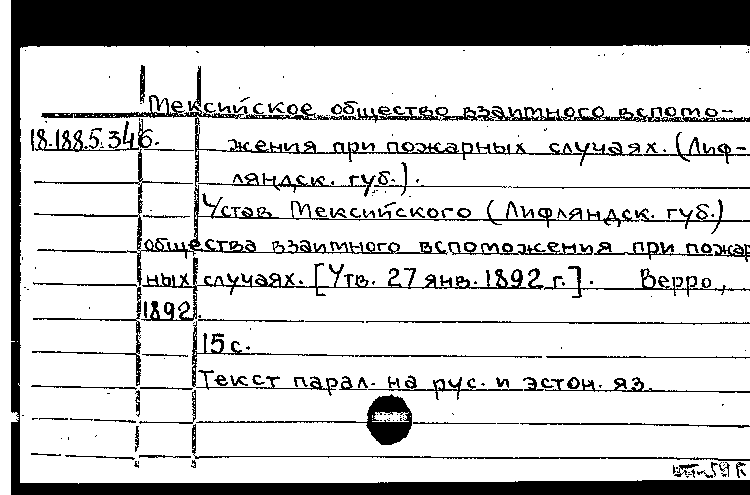 Мексийское общество взаимного вспомо-
18.188.5.346.
жения при пожарных случаях. (Лиф-
ляндск. губ.).
Устав Мексийского (Лифляндск. губ.)
общества взаимного вспоможения при пожар
ных случаях. [Утв. 27 янв. 1892 г.]. Верро,
1892.
15 с.
Текст парал. на рус. и эстон. яз.